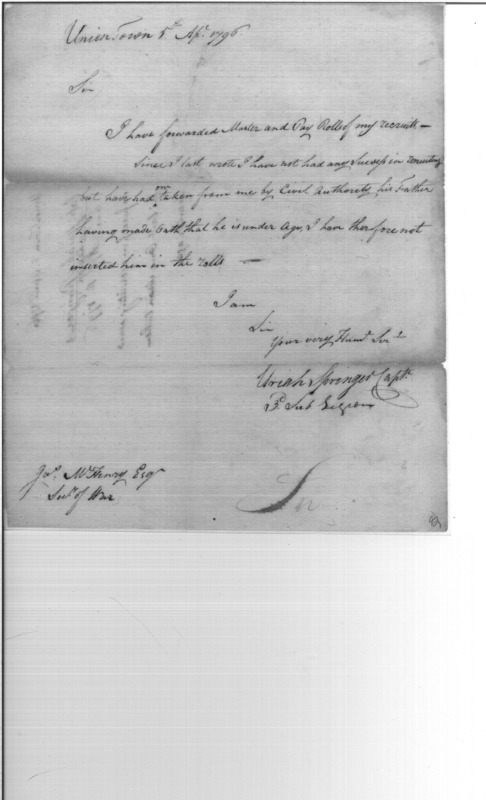 Union Town 5th Apl. 1796
Sir
I have forwarded Muster and Pay Rolls of my recruits —
Since I last wrote I have not had any Success in recruiting
but have had one taken from me by Civil Authority his Father
having made Oath that he is under Age, I have therfore not
inserted him in the Rolls —
I am
Sir
Your very Humb. Servt
Uriah Springer Capt.
3d. Sub Legion
Jas. McHenry Esqr
Secy. of War